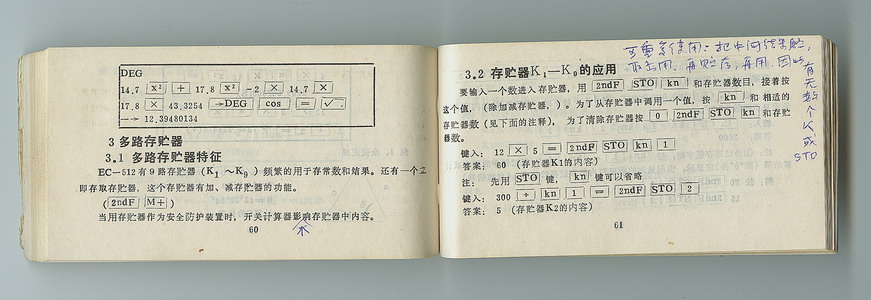 DEG
14.7 x² + 17.8 x² -2 × 14.7 ×
17.8 × 43.3254 →DEG cos = √
--→ 12.39480134
3 多路存贮器
3.1 多路存贮器特征
EC—512有9路存贮器(K₁～K₉)频繁的用于存常数和结果。还有一个立
即存取存贮器，这个存贮器有加、减存贮器的功能。
(2ndF M+)
当用存贮器作为安全防护装置时，开关计算器影响存贮器中内容。
不
60
可重复使用：把中间结果贮，
再贮存，再用，因此
有无数个K或STO
3.2 存贮器K₁—K₉的应用
要输入一个数进入存贮器，用 2ndF STO kn 和存贮器数目，接着按
这个值，(除加减存贮器，)。为了从存贮器中调用一个值，按 kn 和相适的
存贮器数(见下面的注释)，为了清除存贮器按 0 2ndF STO kn 和存贮
器数。
键入： 12 × 5 = 2ndF STO kn 1
答案： 60 (存贮器K1的内容)
注： 先用 STO 键， kn 键可以省略
键入： 300 ÷ kn 1 = 2ndF STO 2
答案： 5 (存贮器K2的内容)
61